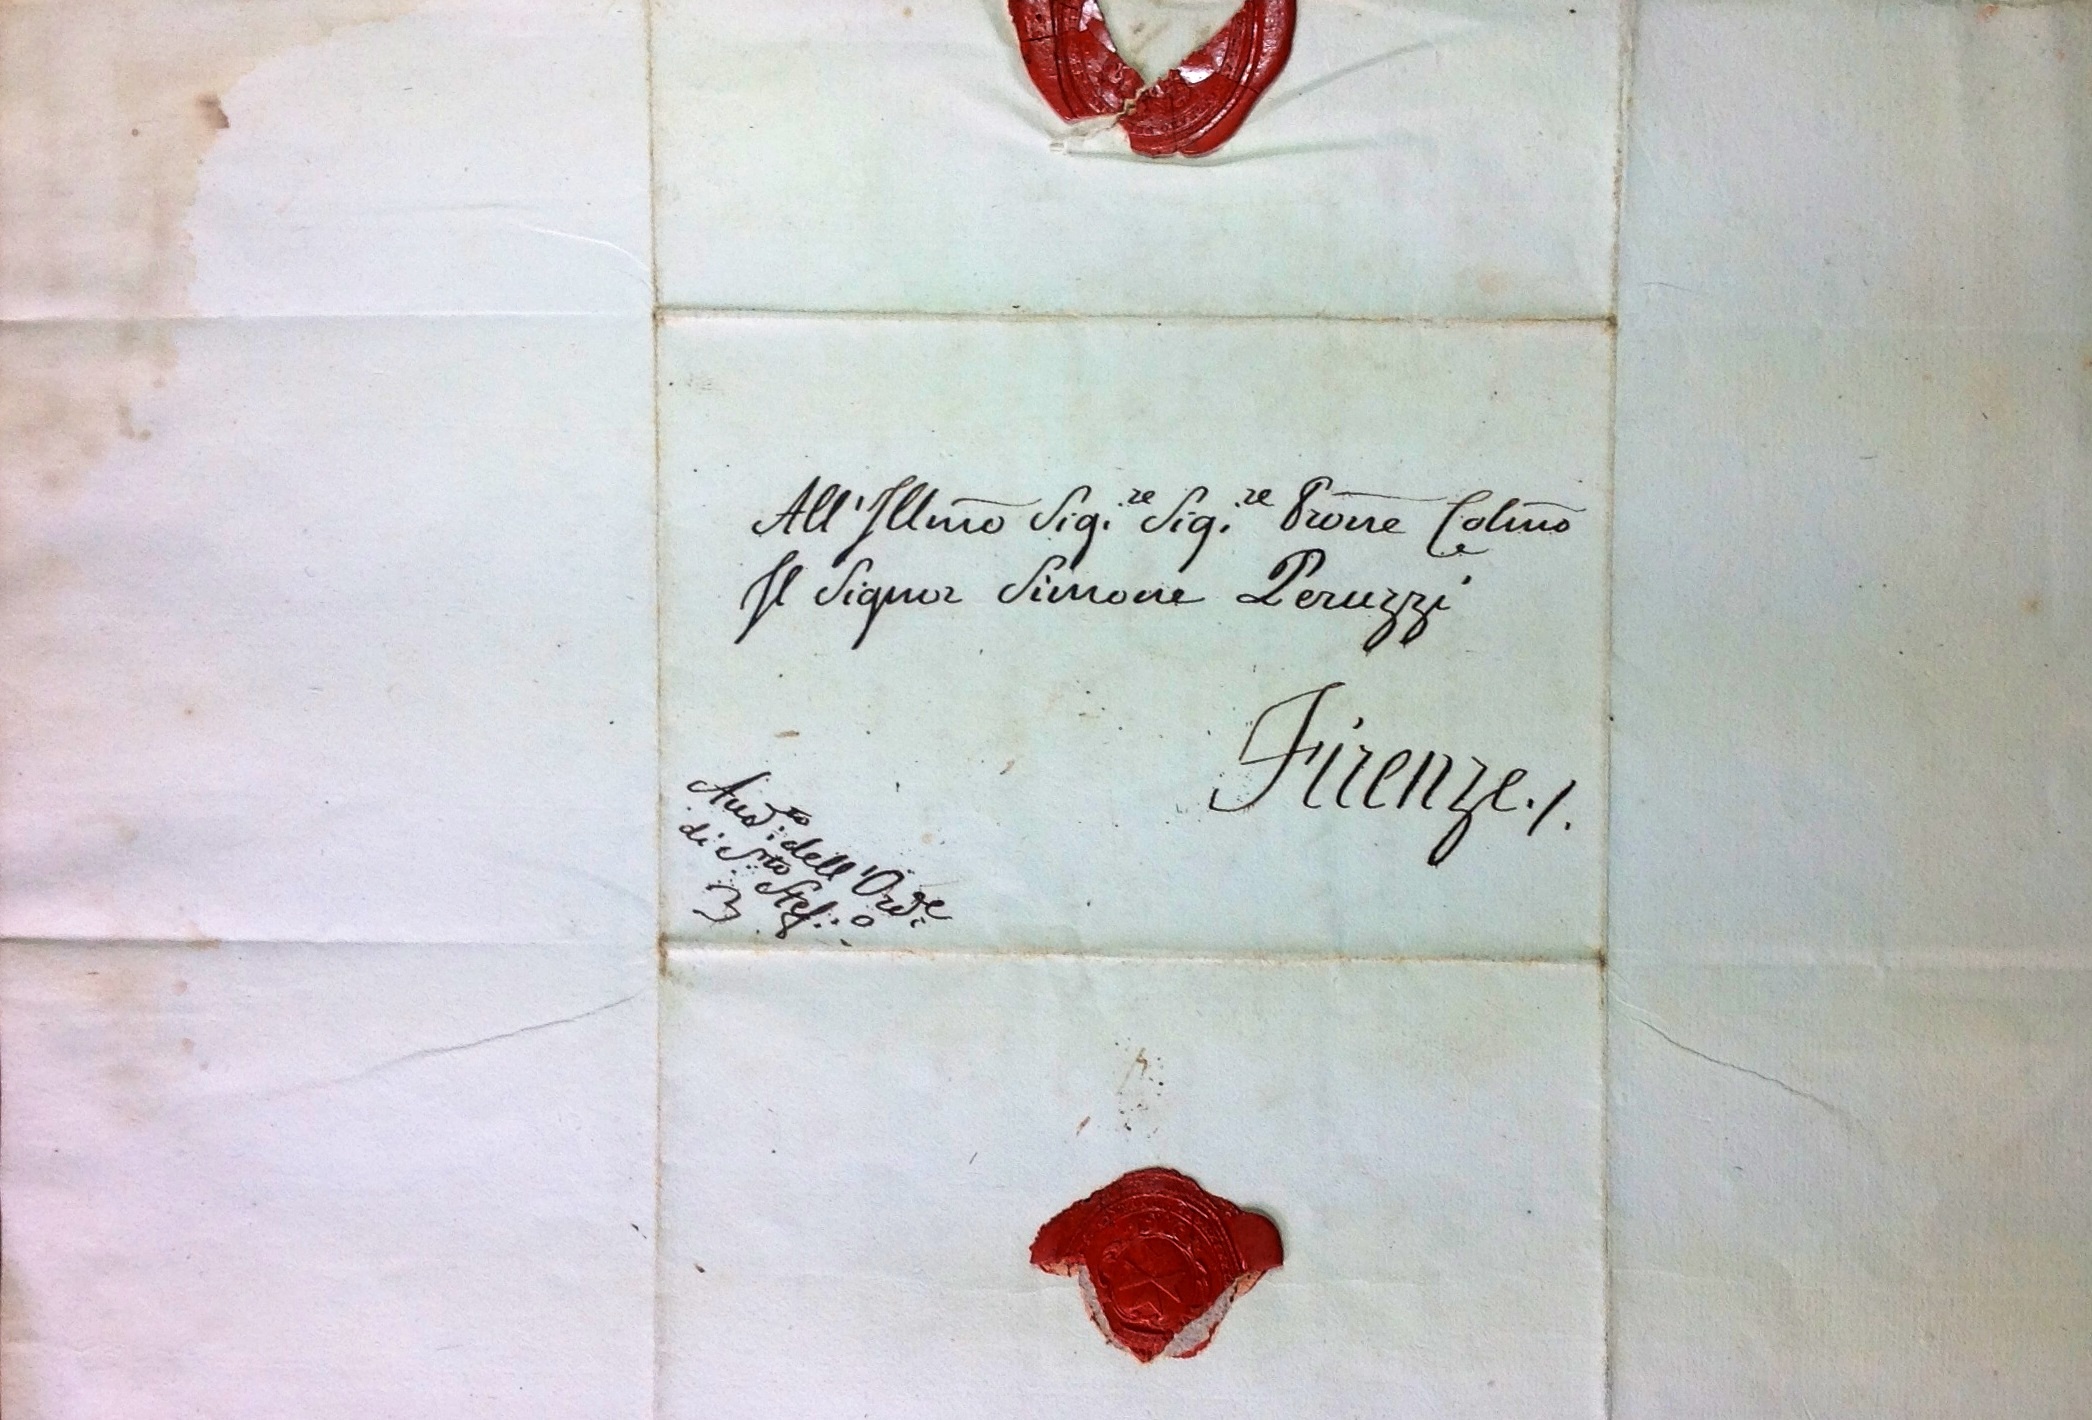 All'Illmo Sigre Sigre Prone Colmo
Il Signor Simone Peruzzi
Firenze./.
Audto: dell'Orde:
di Sto Stefo: